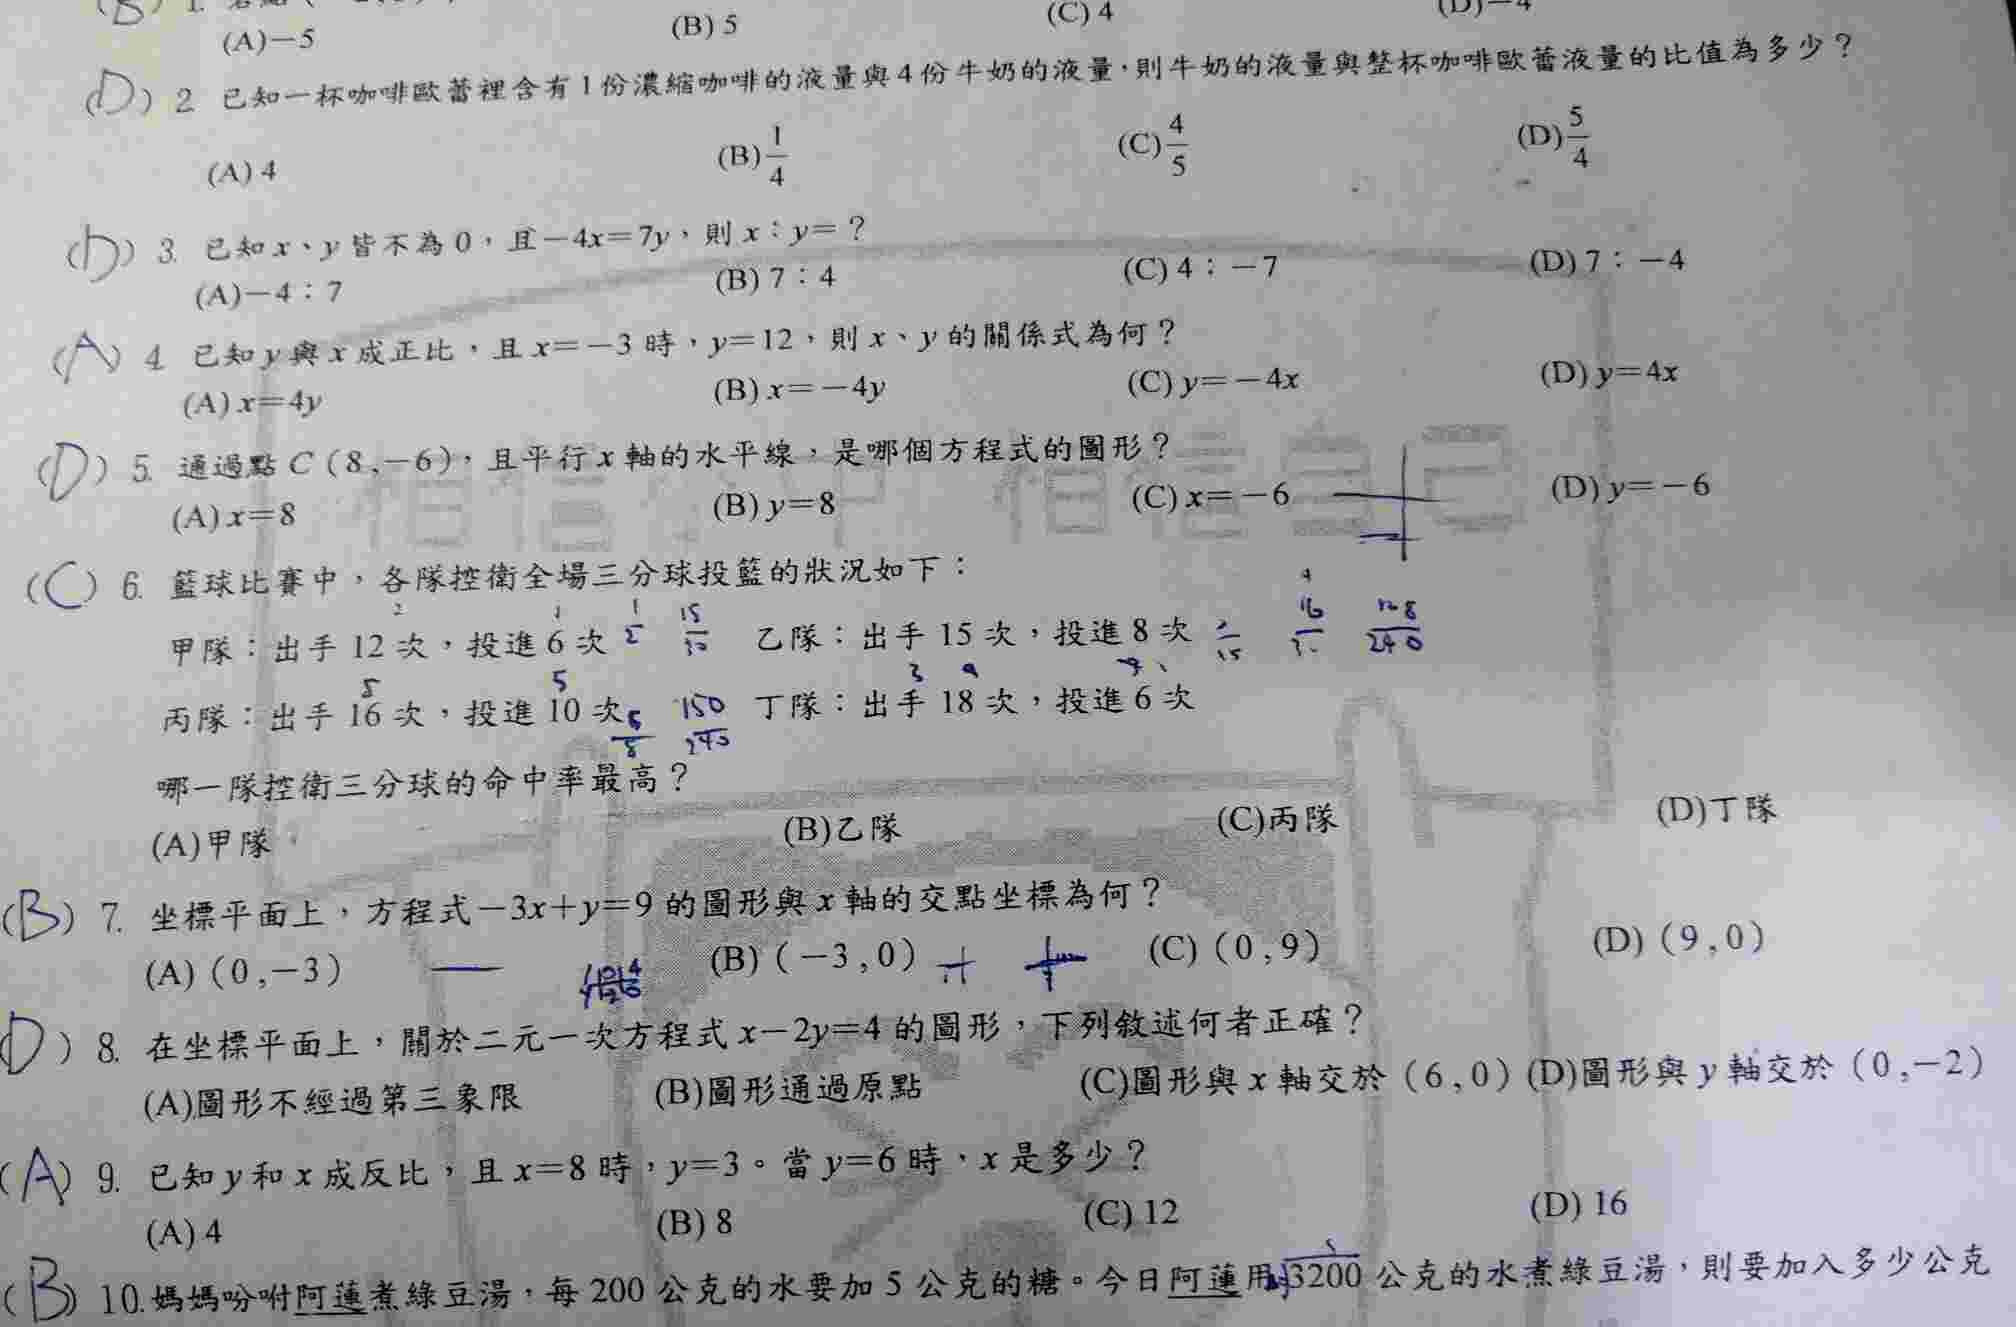 (B) 1.
(A)－5 (B) 5 (C) 4 (D)－4
(D) 2. 已知一杯咖啡歐蕾裡含有1份濃縮咖啡的液量與4份牛奶的液量，則牛奶的液量與整杯咖啡歐蕾液量的比值為多少？
(A) 4 (B) 1/4 (C) 4/5 (D) 5/4
(D) 3. 已知 x、y 皆不為 0，且－4x＝7y，則 x：y＝？
(A)－4：7 (B) 7：4 (C) 4：－7 (D) 7：－4
(A) 4. 已知 y 與 x 成正比，且 x＝－3 時，y＝12，則 x、y 的關係式為何？
(A) x＝4y (B) x＝－4y (C) y＝－4x (D) y＝4x
(D) 5. 通過點 C（8 ,－6），且平行 x 軸的水平線，是哪個方程式的圖形？
(A) x＝8 (B) y＝8 (C) x＝－6 (D) y＝－6
(C) 6. 籃球比賽中，各隊控衛全場三分球投籃的狀況如下：
甲隊：出手 12 次，投進 6 次 1/2 乙隊：出手 15 次，投進 8 次 128/240
丙隊：出手 16 次，投進 10 次 5/8 150/240 丁隊：出手 18 次，投進 6 次
哪一隊控衛三分球的命中率最高？
(A)甲隊 (B)乙隊 (C)丙隊 (D)丁隊
(B) 7. 坐標平面上，方程式－3x＋y＝9 的圖形與 x 軸的交點坐標為何？
(A)（0 ,－3） (B)（－3 , 0） (C)（0 , 9） (D)（9 , 0）
(D) 8. 在坐標平面上，關於二元一次方程式 x－2y＝4 的圖形，下列敘述何者正確？
(A)圖形不經過第三象限 (B)圖形通過原點 (C)圖形與 x 軸交於（6 , 0） (D)圖形與 y 軸交於（0 ,－2）
(A) 9. 已知 y 和 x 成反比，且 x＝8 時，y＝3。當 y＝6 時，x 是多少？
(A) 4 (B) 8 (C) 12 (D) 16
(B) 10. 媽媽吩咐阿蓮煮綠豆湯，每 200 公克的水要加 5 公克的糖。今日阿蓮用 3200 公克的水煮綠豆湯，則要加入多少公克